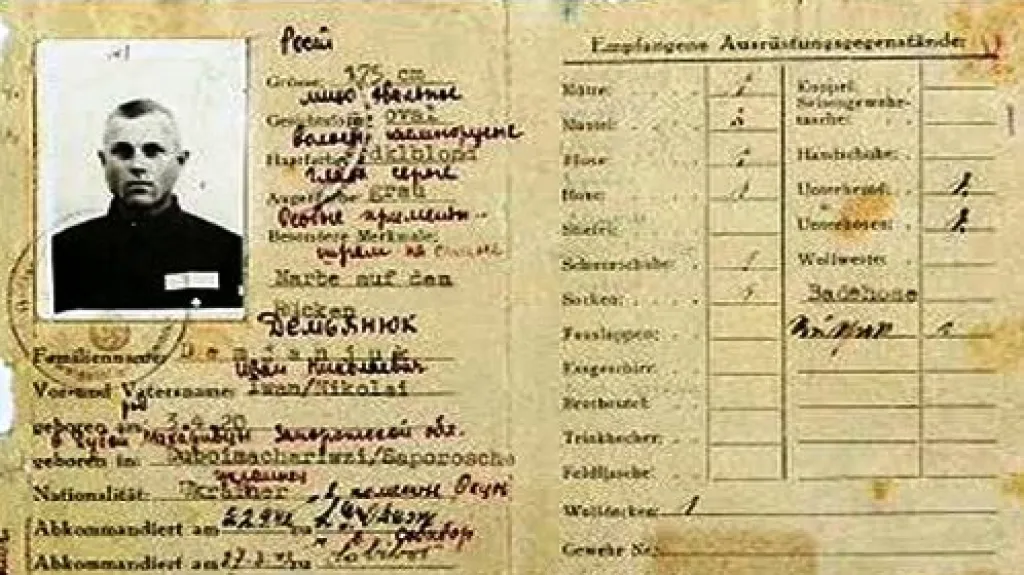 Рост
Grösse: 175 cm
лицо овальное
Gesichtsform: oval
волосы темнорусые
Haarfarbe: dklblond
глаза серые
Augenfarbe: grau
Особые приметы
Besondere Merkmale:
шрам на спине
Narbe auf dem
Rücken
Демьянюк
Familienname: Demjanjuk
Иван Николаевич
Vor-und Vatersname: Iwan/Nikolai
geboren am: 3.4.20
Запорожской обл.
geboren in: Duboimachariwzi/Saporosche
украинец
Nationalität: Ukrainer
Abkommandiert am 22.9.42 zu
Собибор
Abkommandiert am 27.3.43 zu Sobibor
Empfangene Ausrüstungsgegenstände:
Mütze: 1
Mantel: 1
Bluse: 1
Hose: 1
Stiefel:
Schnürschuhe: 1
Socken: 1
Fusslappen:
Essgeschirr:
Brotbeutel:
Trinkbecher:
Feldflasche:
Wolldecken: 1
Gewehr Nr.:
Koppel:
Seitengewehr-
tasche:
Handschuhe:
Unterhemd: 1
Unterhosen: 1
Wollweste:
Badehose